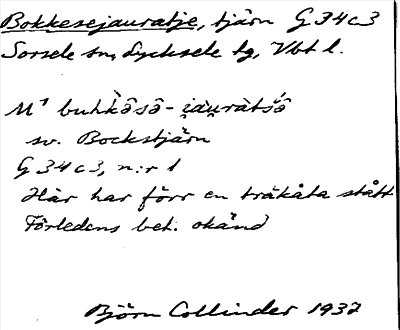 Bokkesejauratje, tjärn G 34 c 3
Sorsele sn, Lycksele tg, Vbt l.
M¹ buhk̀ȯ̂sȯ̂-i̯àu̯ràtśȯ̂
sv. Bockstjärn
G 34 c 3, n:r 1
Här har förr en träkåta stått
Förledens bet. okänd
Björn Collinder 1937